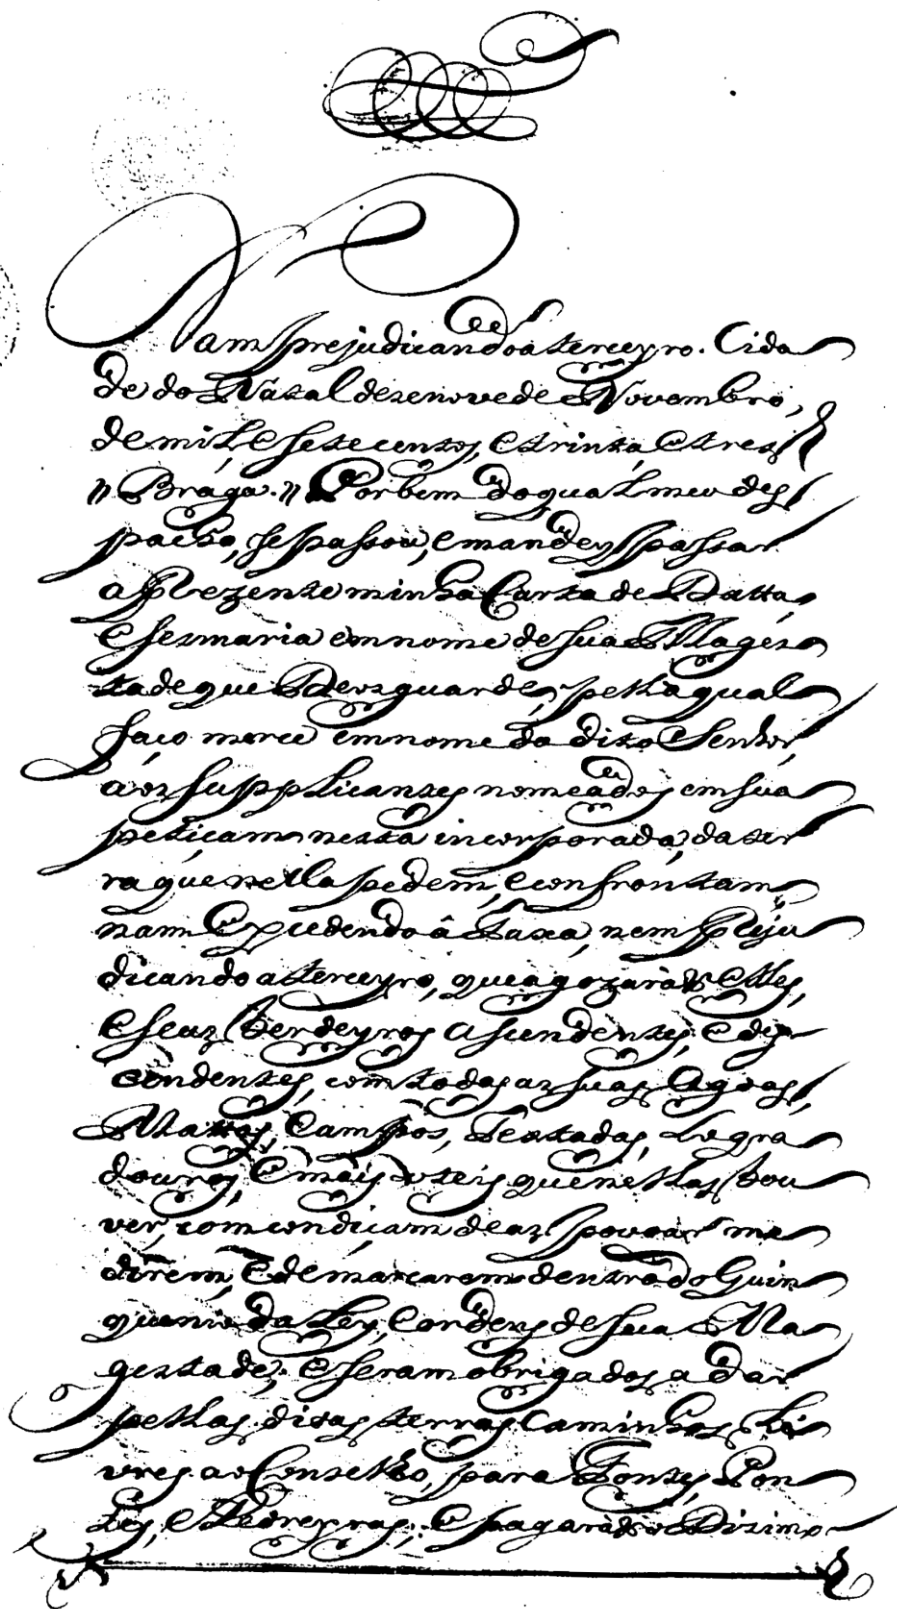 Nam prejudicando a terceyro. Cida
de do Natal dezenove de Novembro,
de mil, e setecentos, e trinta, e tres
// Braga. // Por bem do qual meu des
pacho, se passou, e mandey passar
a prezente minha Carta de Datta,
e sesmaria em nome de sua Magés
tade que Deos guarde, pella qual
faço merce em nome do dito Senhor
aos supplicantes nomeados em sua
peticam nesta incorporada, da ter
ra que nella pedem, e confrontam
nam excedendo â taxa, nem preju
dicando a terceyro, que a gozarâo elles,
e seus herdeyros ascendentes, e des
cendentes, com todas as suas Agoas,
Mattos, Campos, Testadas, Logra
douros, e mais uteis que nellas hou
ver, com condicam de as povoar me
direm, e demarcarem dentro do Quin
quenio da Ley, e ordens de sua Ma
gestade; e seram obrigados a dar
pellas ditas terras Caminhos Li
vres ao Conselho, para Fontes, Pon
tes, e Pedreyras; e pagarâo Dizimo